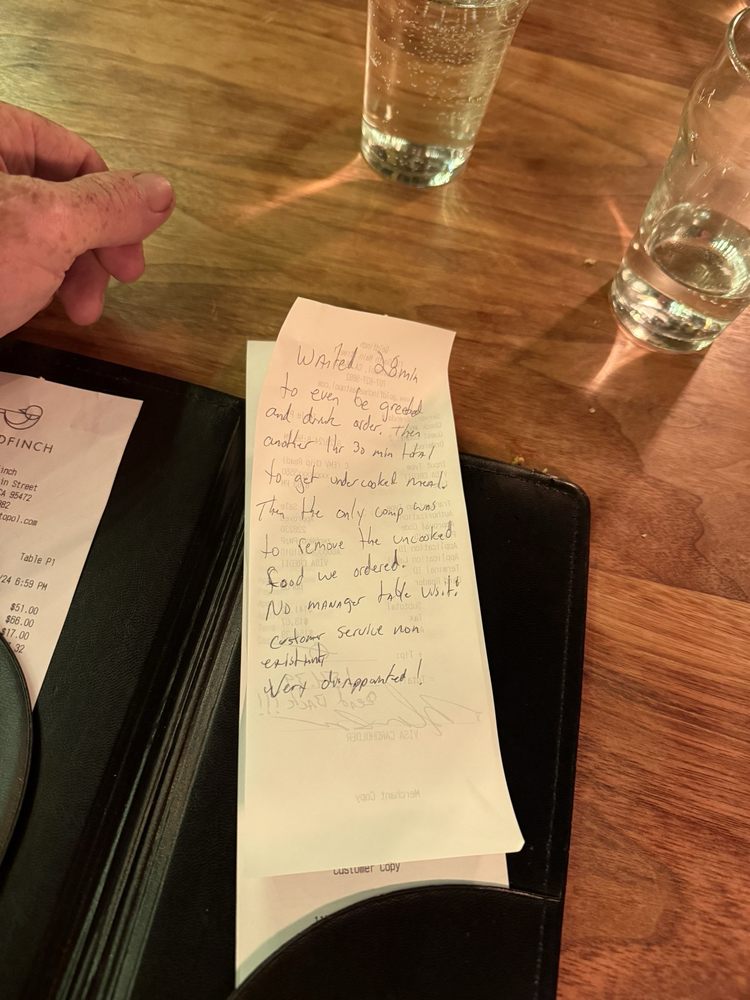 DFINCH
inch
in Street
CA 95472
982
topol.com
Table P1
/24 6:59 PM
$51.00
$66.00
$17.00
32
Waited 28min
to even be greeted
and drink order. Then
another 1hr 30 min total
to get undercooked meal.
Then the only comp was
to remove the uncooked
food we ordered.
No manager table visit.
customer service non
existant
Very disappointed!
VISA CARDHOLDER
Merchant Copy
Customer Copy